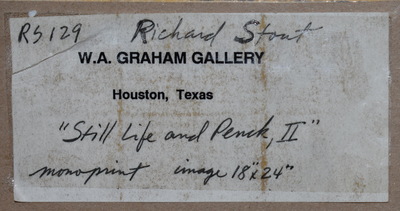 RS129 Richard Stout
W.A. GRAHAM GALLERY
Houston, Texas
"Still Life and Penck, II"
monoprint image 18"x24"